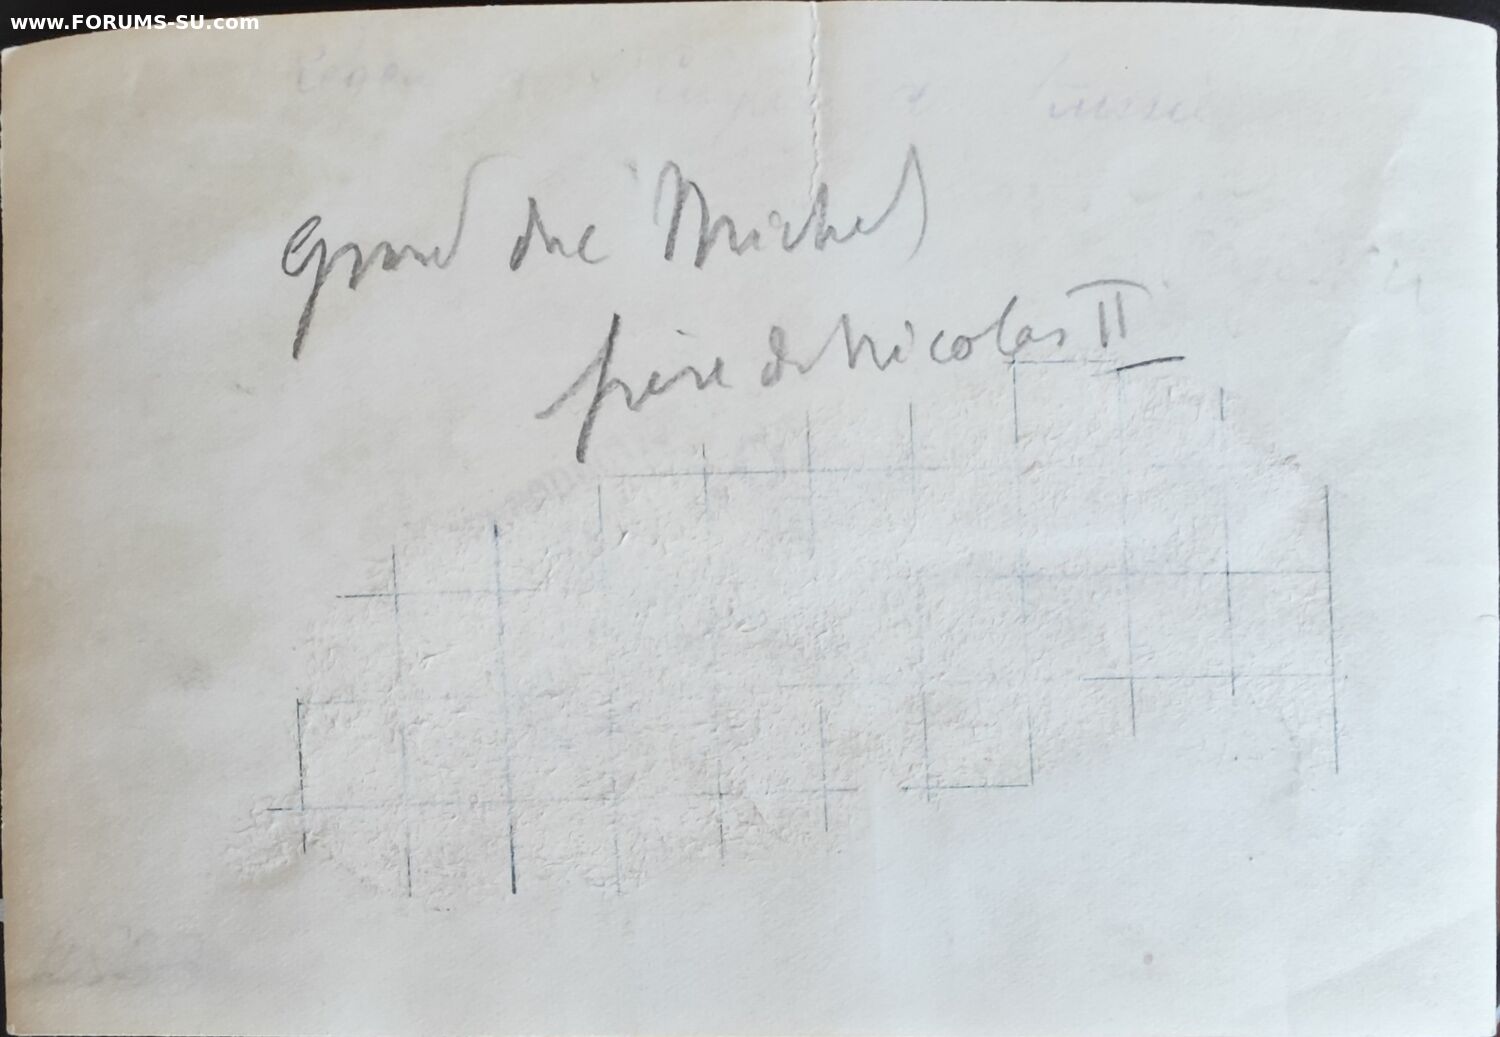 www.FORUMS-SU.com
Grand duc Michel
frère de Nicolas II